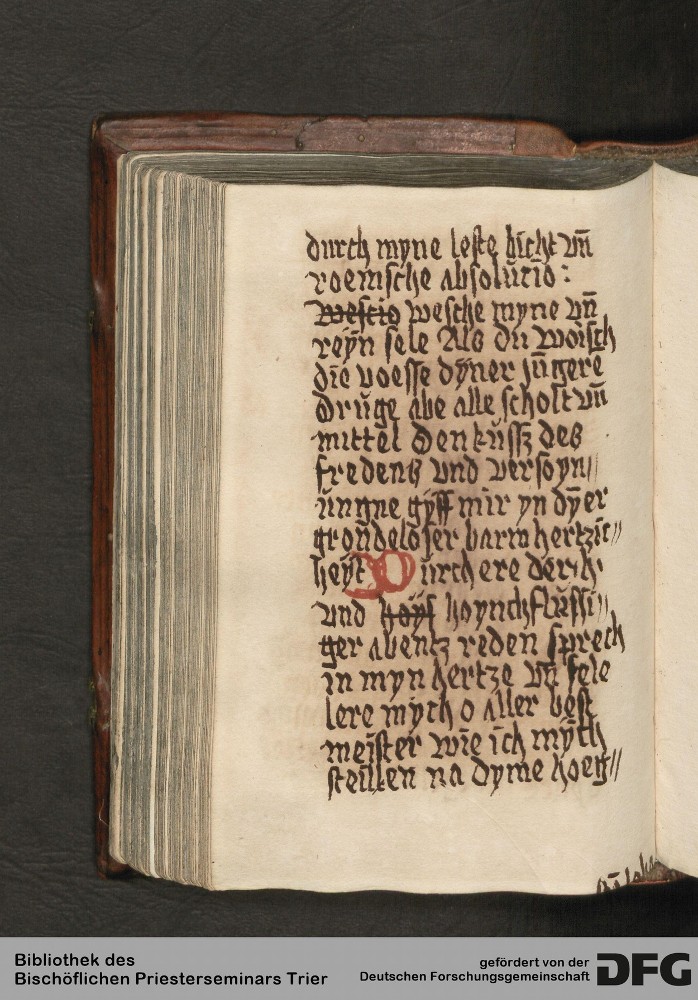 durch myne leste bicht vn̄
roemsche absolucio:
wescio wesche myne vn̄
reyn sele Als du woisch
die voesse dyner jungere
Druge abe alle scholt vn̄
mittel Den kussz des
fredens vnd versoyn//
ungne gyff mir yn dyer
grondeloser barmhertzic//
heyt Durch ere der h·
vnd hoynchflussi//
ger abentz reden sprech
in myn hertze vn̄ sele
lere mych o aller best
meister wie ich mych
steillen na dyme hoeg//
Bibliothek des
Bischöflichen Priesterseminars Trier
gefördert von der
Deutschen Forschungsgemeinschaft
DFG